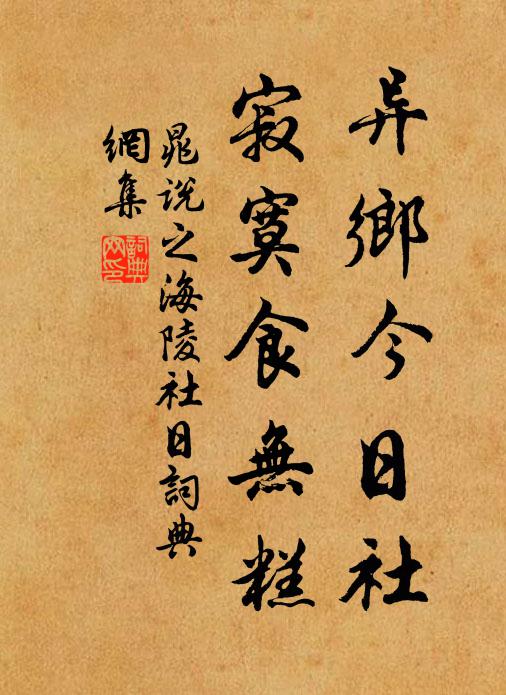 异鄉今日社
寂寞食無糕
晁說之海陵社日詞典
網集
詞典
网印